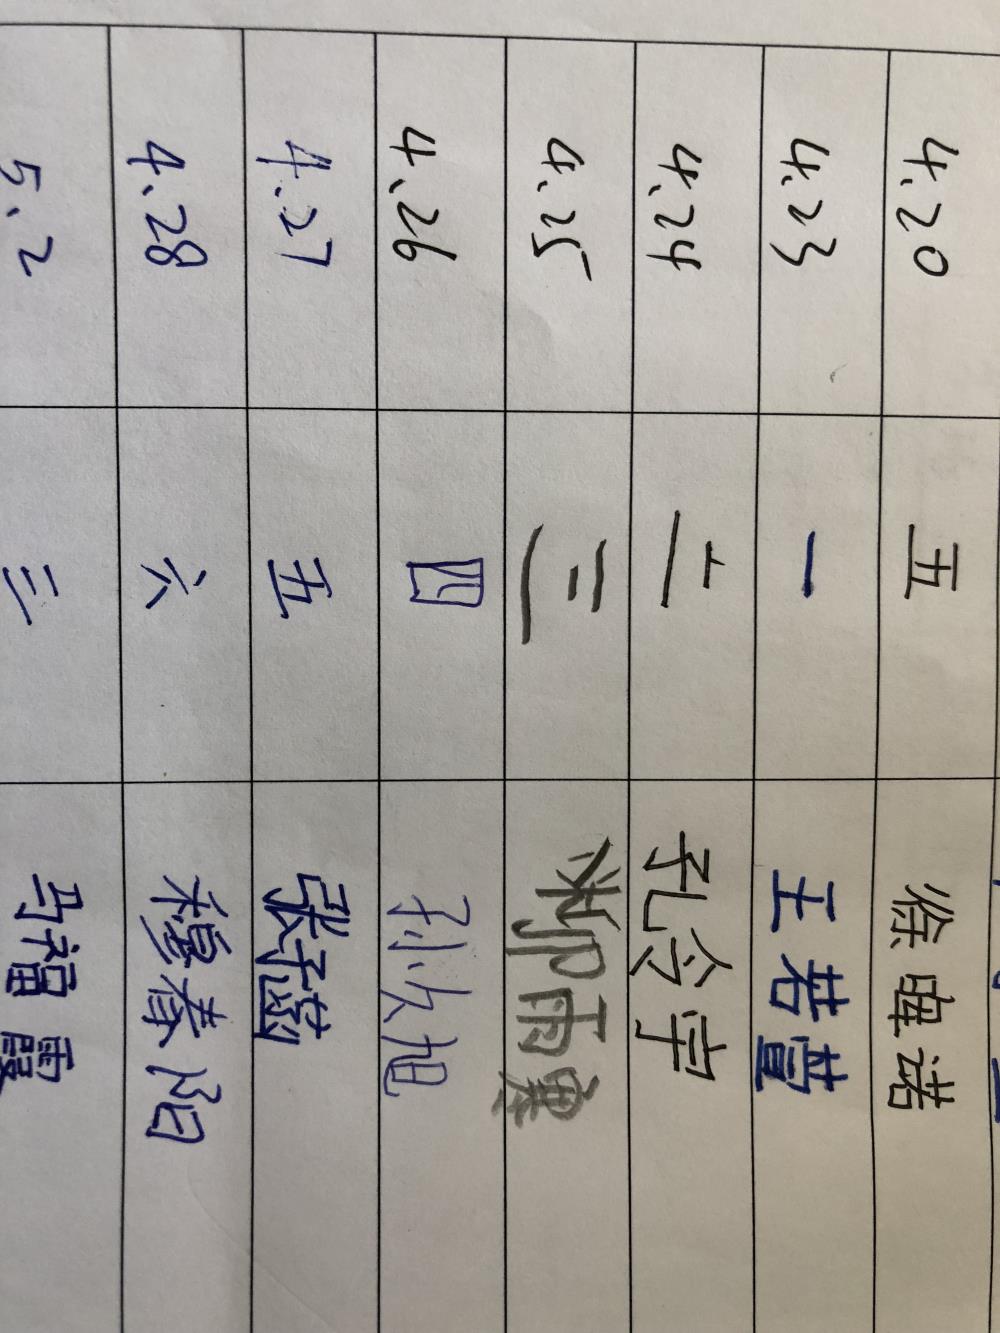 4.20 五 徐晦诺
4.23 一 王若萱
4.24 二 孔令宇
4.25 三 柳雨
4.26 四 孙旭
4.27 五 张子菡
4.28 六 穆春阳
5.2 三 马福霞